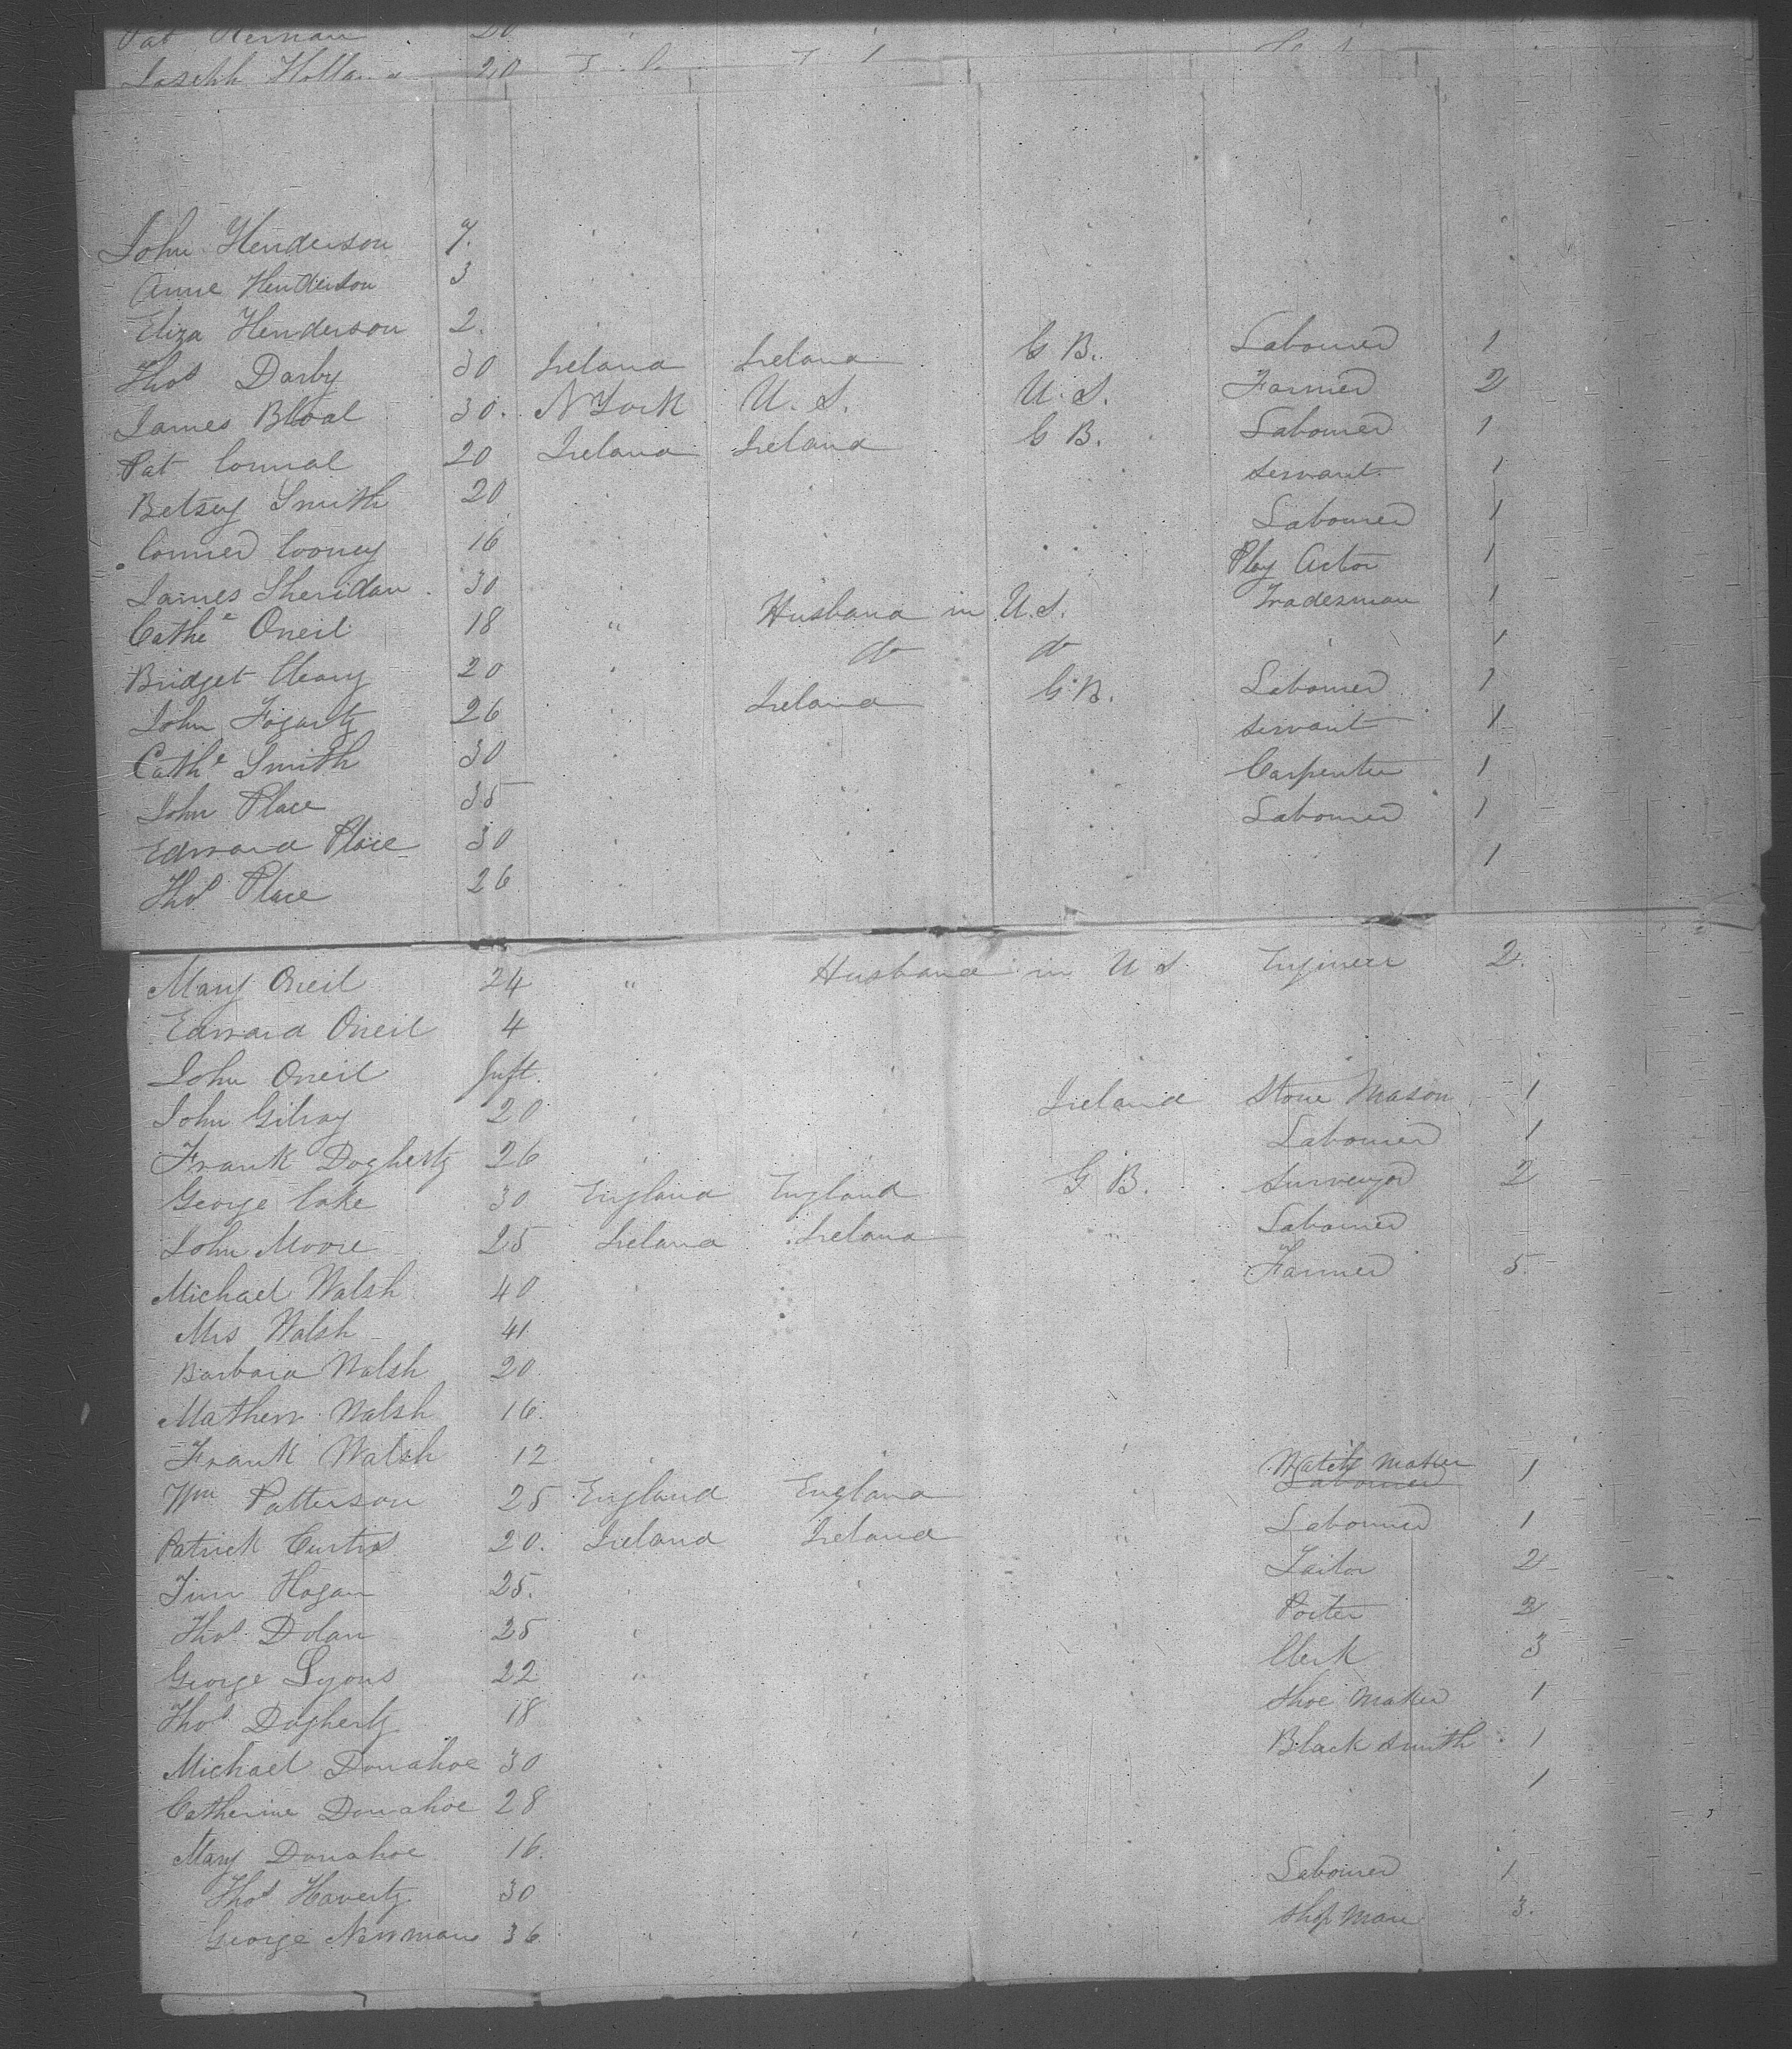 Pat Kernan 20
Joseph Holland 20
John Henderson 7.
Anne Henderson 3
Eliza Henderson 2.
Thos Darby 30 Ireland Ireland G B. Labourer 1
James Bloal 30. N York U. S. U. S. Farmer 2
Pat Connal 20 Ireland Ireland G B. Labourer 1
Betsey Smith 20 " " " servant 1
Conner Cooney 16 " " " Labourer 1
James Sheridan 30 " " " Play Actor 1
Cathe Oneil 18 " Husband in U. S. Tradesman 1
Bridget Cleary 20 " do do " 1
John Fogarty 26 " Ireland G. B. Labourer 1
Cathe Smith 30 " servant 1
John Place 35 " " " Carpenter 1
Edward Place 30 " " " Labourer 1
Thos Place 26 " " " " 1
Mary Oneil 24 " Husband in U S Engineer 2.
Edward Oneil 4
John Oneil Inft. " "
John Gilray 20 " " Ireland Stone Mason 1
Frank Dogherty 26 " " Labourer 1
George Cake 30 England England G B. Surveyor 2
John Moore 25 Ireland Ireland " Labourer
Michael Walsh 40 " " " Farmer 5
Mrs Walsh 41
Barbara Walsh 20
Mathew Walsh 16.
Frank Walsh 12 " " "
Wm Patterson 25 England England " Watch Maker Labourer 1
Patrick Curtis 20. Ireland Ireland " Labourer 1
Tim Hogan 25. " " " Tailor 2
Thos Dolan 25 " " " Porter 2
George Lyons 22 " " " Clerk 3
Thos Doghertz 18 " " " Shoe Maker 1
Michael Donahoe 30 " " " Black Smith 1
Catherine Donahoe 28 " " " " 1
Mary Donahoe 16.
Thos Havertz 30 " " " Labourer 1
George Newman 36 " " Shop Man 3.